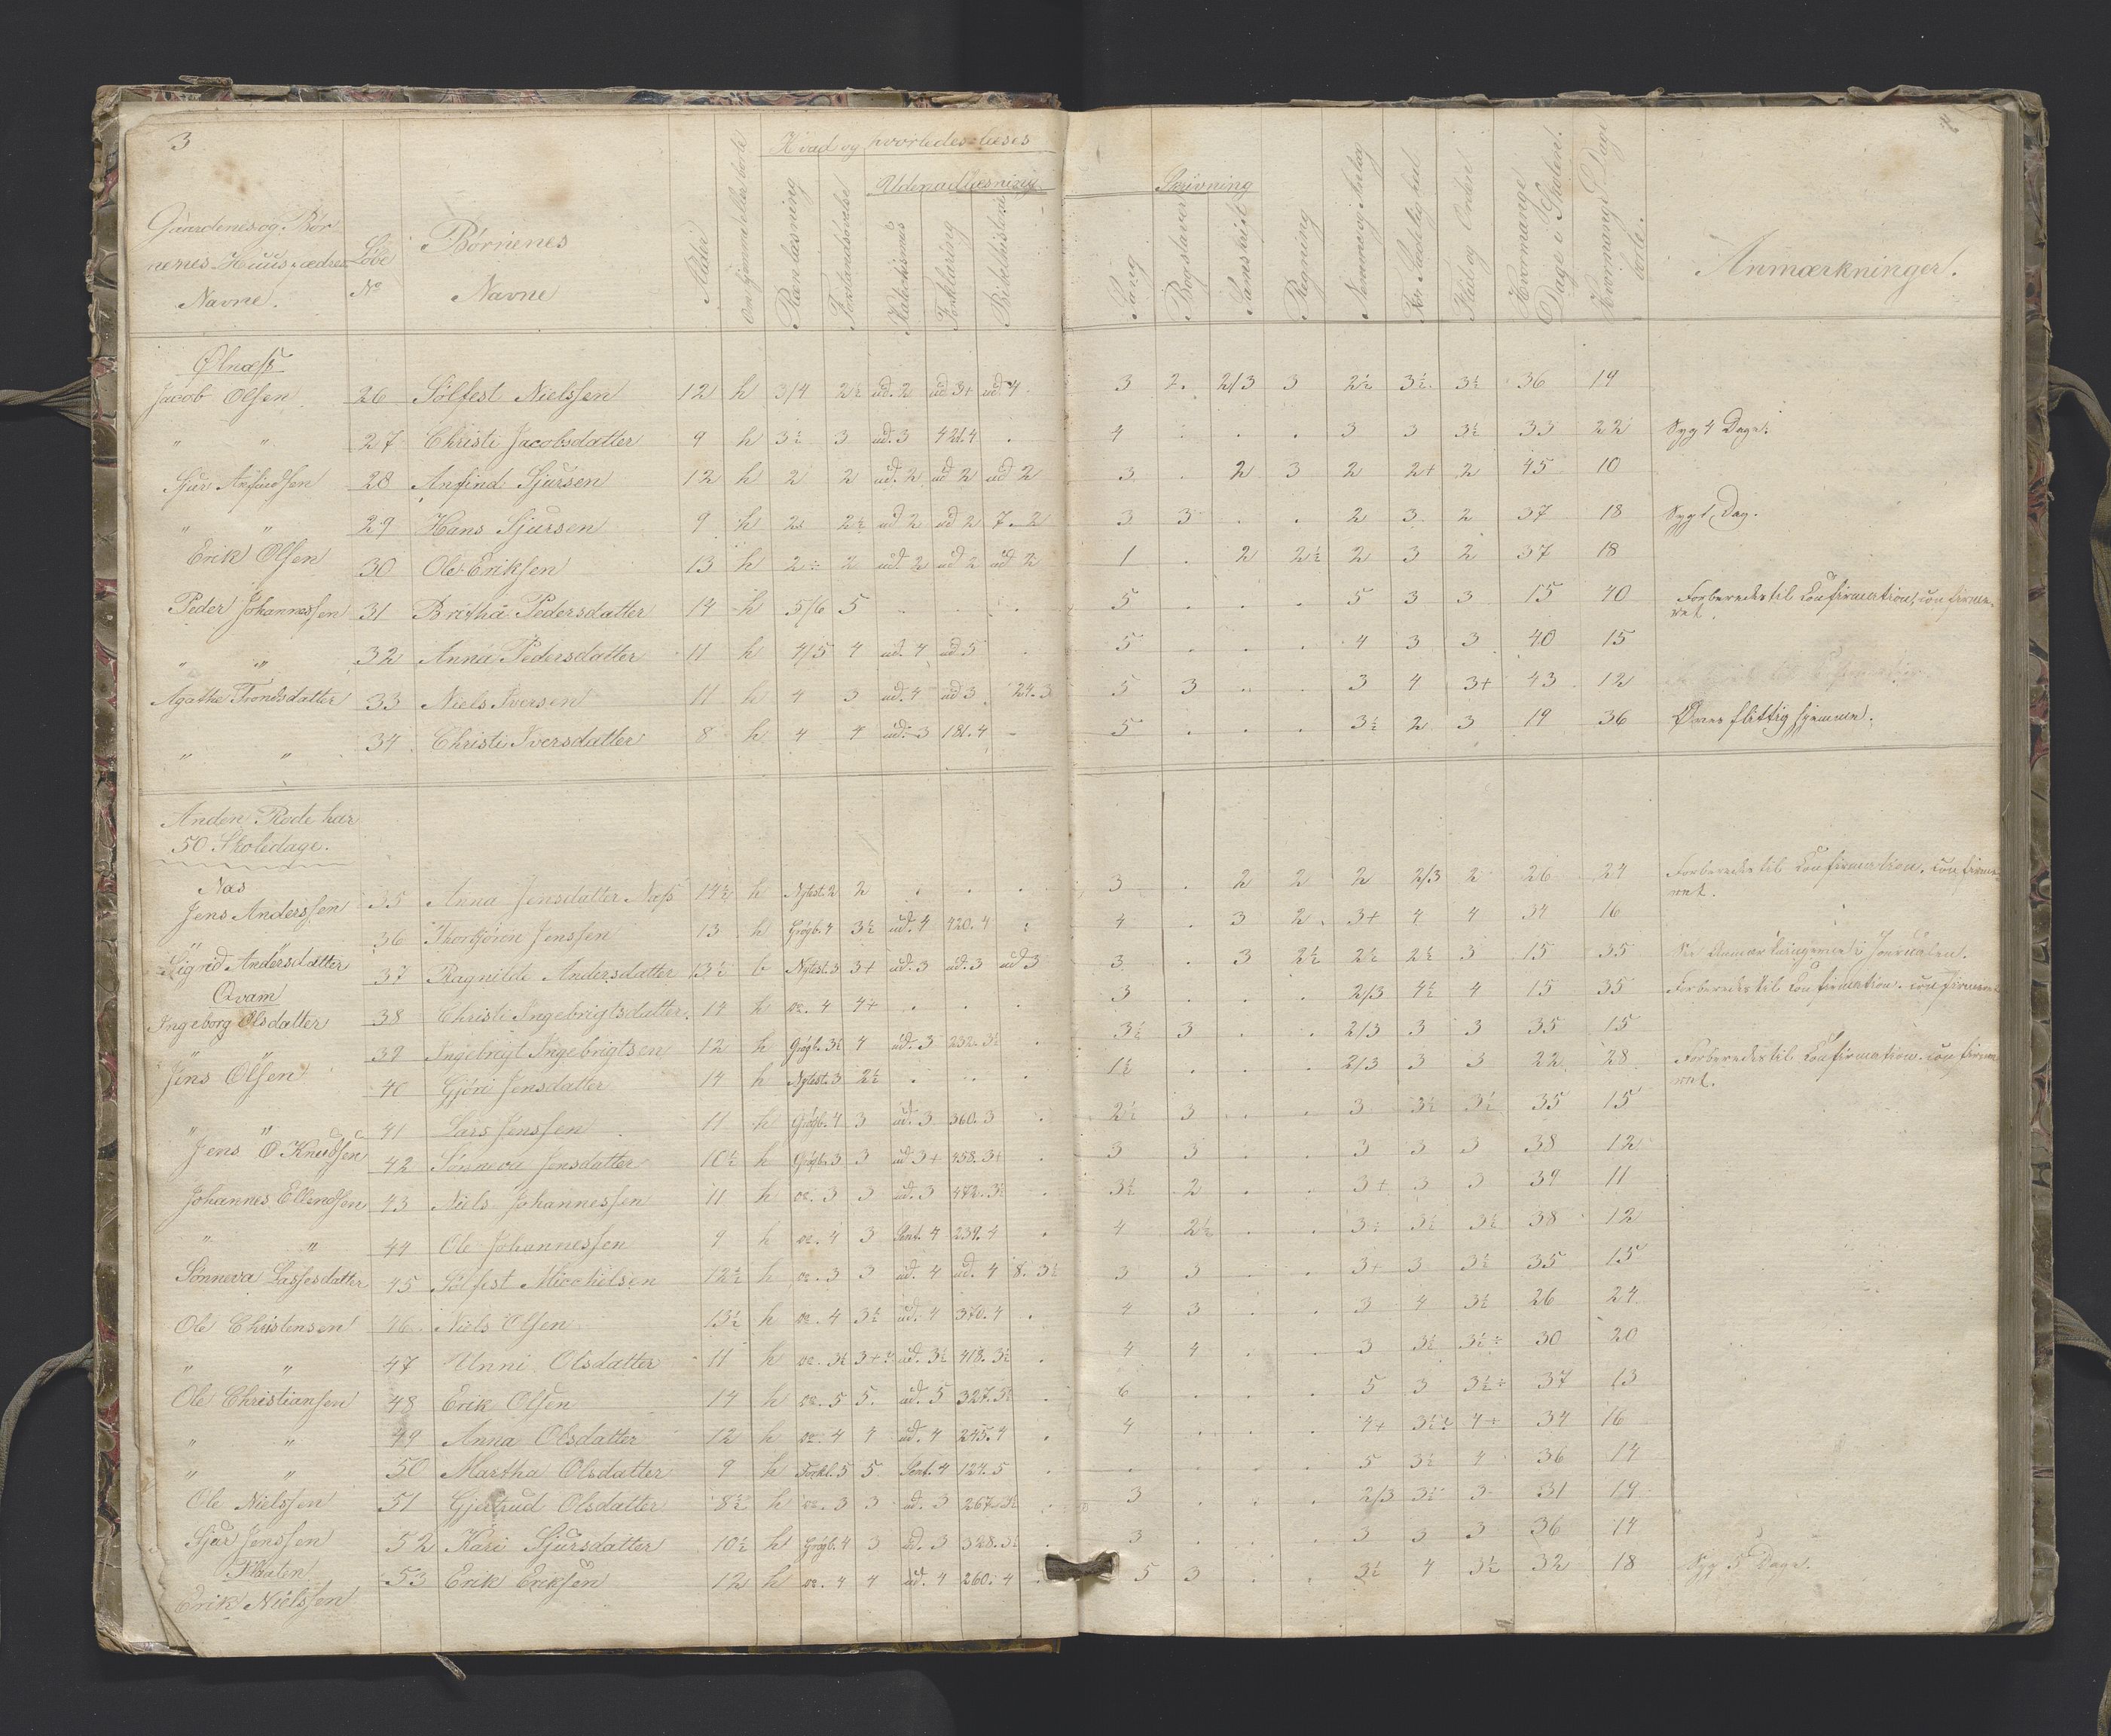 3
Gaardenes og Bør
nenes Huusfædres
Navne.
Løbe
No
Børnenes
Navne
Alder
Om hjemme eller borte
Hvad og hvorledes læses
Reen læsning
Forstandsøvelse
Udenadlæsning
Katechismus
Forklaring
Bibelhistorie
Sang
Skrivning
Bogstaver
Samskrift
Regning
Nemme og Anlæg
For Sædelighed
Flid og Orden
Hvormange
Dage i Skolen.
Hvormange Dage
borte.
Anmærkninger.
Ølnæss
Jacob Olsen 26 Sølfest Nielssen 12 h 3/4 2½ ud. 2 ud 3+ ud. 4 3 2. 2/3 3 2½ 3½ 3½ 36 19
" " 27 Christi Jacobsdatter 9 h 3½ 3 ud. 3 421.4 . 4 . . . 3 3 3½ 33 22 Syg 4 Dage.
Sjur Anfindsen 28 Anfind Sjursen 12 h 2 2 ud. 2 ud 2 ud 2 3 . 2 3 2 2+ 2 45 10
" " 29 Hans Sjursen 9 h 2 2½ ud 2 ud 2 7. 2 3 3 . . 2 3 2 37 18 Syg 1 Dag.
Erik Olsen 30 Ole Eriksen 13 h 2÷ 2 ud. 2 ud 2 ud 2 1 . 2 2½ 2 3 2 37 18
Peder Johannessen 31 Britha Pedersdatter 14 h 5/6 5 . . . 5 . . . 5 3 3 15 40 Forberedes til Confirmation, confirme-
ret.
" " 32 Anna Pedersdatter 11 h 4/5 4 ud. 4 ud 5 . 5 . . . 4 3 3 40 15
Agathe Trondsdatter 33 Niels Iversen 11 h 4 3 ud. 4 ud 3 24.3 5 3 . . 3 4 3+ 43 12
" " 34 Christi Iversdatter 8 h 4 4 ud. 3 181.4 - 5 . . . 3½ 2 3 19 36 flittig hjemme.
Anden Rode har
50 Skoledage.
Næs
Jens Anderssen 35 Anna Jensdatter Næss 14½ h Nytest. 2 2 . . . 3 . 2 2 2 2/3 2 26 24 Forberedes til Confirmation, confirme-
ret.
" " 36 Thorbjøren Jenssen 13 h 4 3½ ud. 4 420.4 . 4 . 3 2. 3+ 4 4 34 16
Sigrid Andersdatter 37 Ragnilde Andersdatter 13½ b Nytest. 3 3+ ud. 3 ud. 3 ud 3 3 . 3 2½ 2½ 2½ 3 15 35 Se Anmærkningerne i Journalen.
Qvam
Ingeborg Olsdatter 38 Christi Ingebrigtsdatter. 14 h 4 4+ . . . 3 . . . 2/3 4½ 4 15 35 Forberedes til Confirmation. confirmeret
" " 39 Ingebrigt Ingebrigtsen 12 h 3½ 4 ud. 3 232.3½ . 3½ 3 . . 2/3 3 3 35 15
Jens Olsen 40 Gjøri Jensdatter 14 h Nytest. 3 2½ . . . 1½ . . . 2/3 3 3 22 28 Forberedes til Confirmation. confirme-
ret.
" " 41 Lars Jenssen 11 h 4 3 ud. 3 360.3 . 2½ 3 . . 3 3½ 3½ 35 15
Jens O Knudsen 42 Sønneva Jensdatter 10½ h 3 3 ud 3+ 358.3+ . 3 3 . . 3 3 3 38 12
Johannes Ellendsen 43 Niels Johannessen 11 h 3 3 ud. 3 472.3½ . 3½ 2 . . 3+ 3 3 39 11
" " 44 Ole Johannessen 9 h 4 3 4 239.4 . 4 2½ . . 3÷ 3½ 3½ 38 12
Sønneva Lassesdatter 45 Sølfest Micchelsen 12½ h 3 3 ud. 4 ud. 4 8. 3½ 3 3 . . 3+ 3 3½ 35 15
Ole Christensen 46 Niels Olsen 13½ h 4 3½ ud. 4 370.4 . 4 3 . . 3 4 3½ 26 24
" " 47 Unni Olsdatter 11 h 3½ 3+ ud. 3½ 418.3½ . 4 4 . . 3 3½ 3½÷ 30 20
Ole Christiansen 48 Erik Olsen 14 h 5 5. ud. 5 327.5½ . 6 . . . 5 3 3½÷ 37 13
" " 49 Anna Olsdatter 12 h 4 4 ud. 4 245.4 . 4 . . . 4+ 3½ 4+ 34 16
" " 50 Martha Olsdatter 9 h Forkl. 5 5 4 124.5 . . . . . 5 3½ 4 36 14
Ole Nielssen 51 Gjertrud Olsdatter 8½ h 3 3 ud. 3 267.3½ . 3 . . . 2/3 3½ 3 31 19
Sjur Jenssen 52 Kari Sjursdatter 10½ h 4 3 ud. 3 328.3½ . 3 . . . 3 3 3 36 14
Erik Nielssen 53 Erik Eriksen 12 h 4 4 ud. 4 260.4 . 5 3 . . 3½ 4 3½ 32 18 Syg 5 Dage.